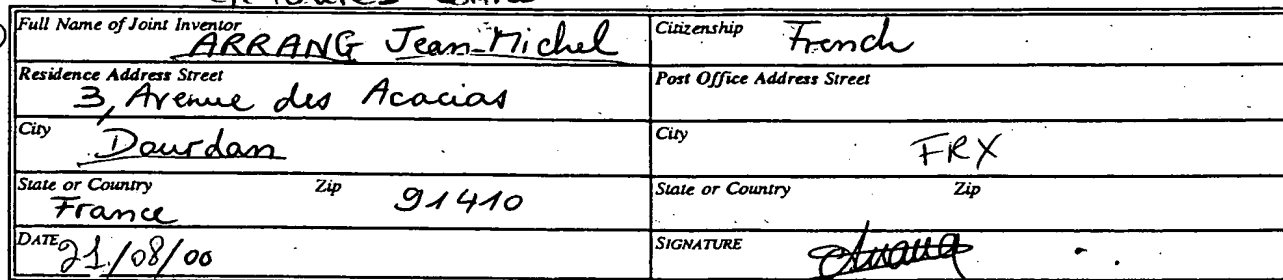 Full Name of Joint Inventor ARRANG Jean-Michel
Citizenship French
Residence Address Street
3, Avenue des Acacias
Post Office Address Street
City Dourdan
City FRX
State or Country Zip
France 91410
State or Country Zip
DATE 21/08/00
SIGNATURE